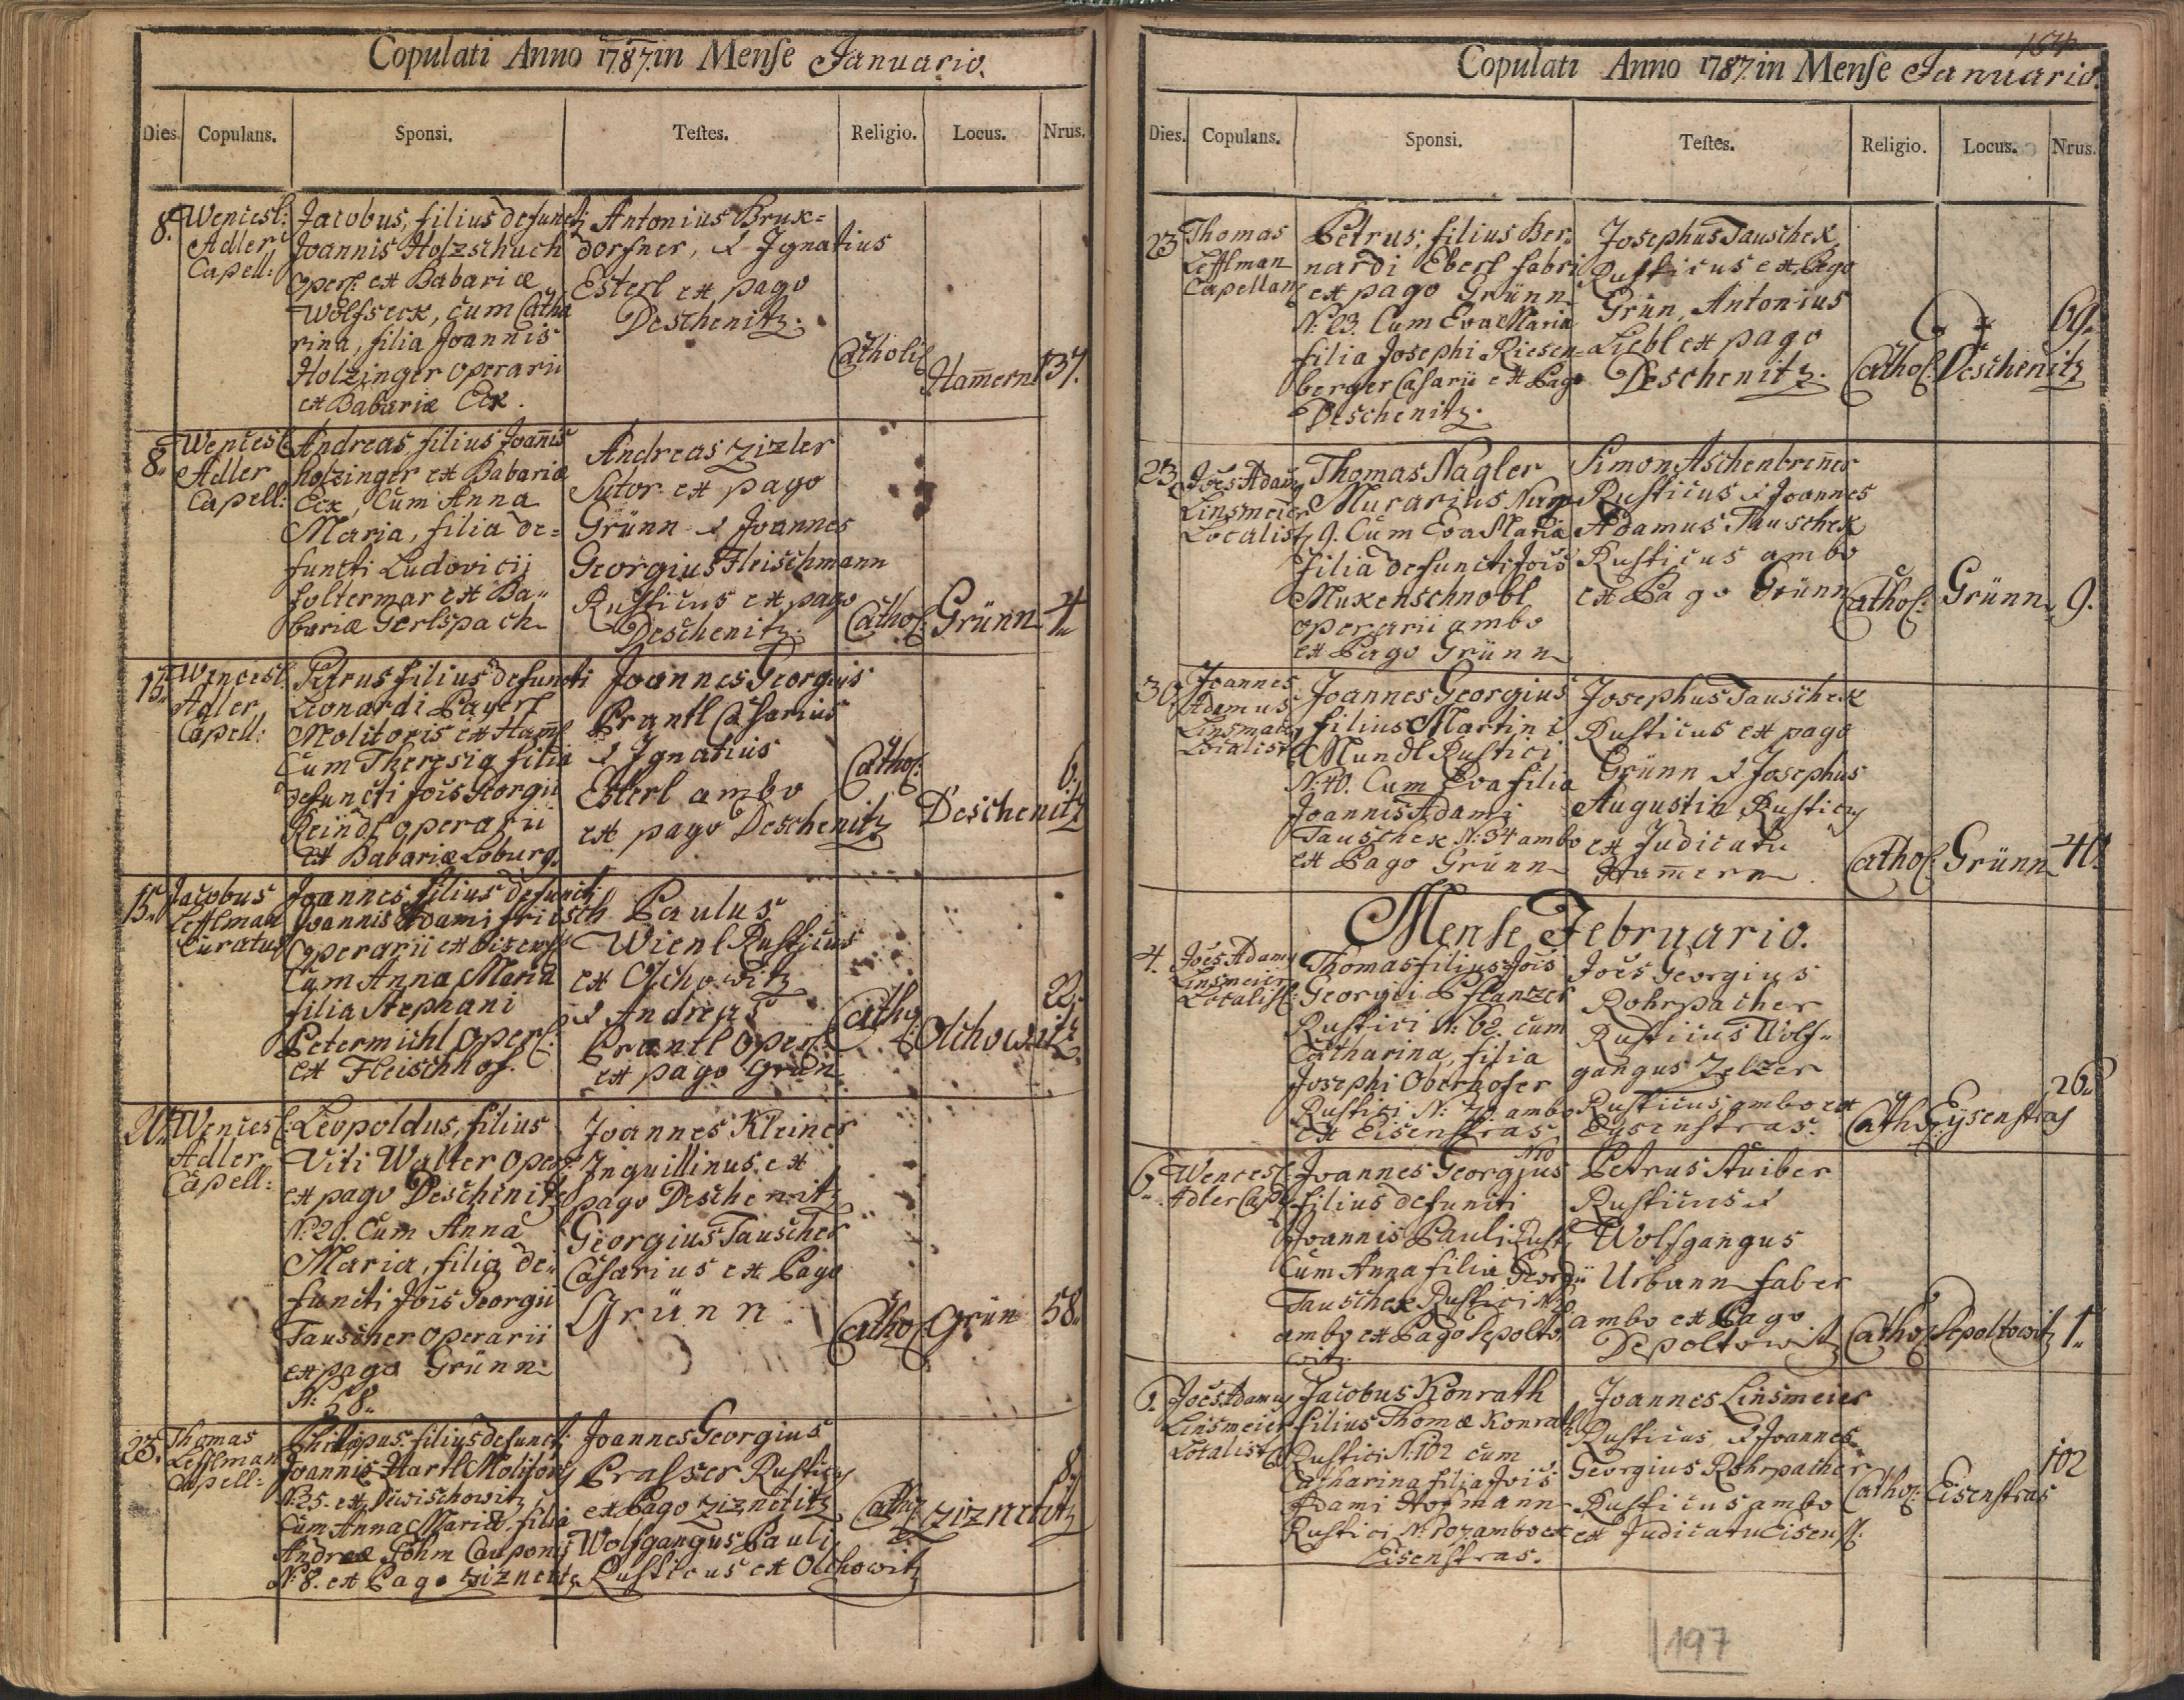 Copulati Anno 1787. in Mense Januario.
Dies. Copulans. Sponsi. Testes. Religio. Locus. Nrus.
8.
Wencesl:
Adler
Capell:
Jacobus, filius defuncti
Joannis Holzschuch
Oper: ex Babariæ
Wolfseck, cum Catha
rina, filia Joannis
Holzinger operarii
ex Babariæ Eck.
Antonius Bruk=
dorfner, & Ignatius
Esterl ex pago
Deschenitz.
Cathol:
Ham̄ern
137.
8.
Wencesl:
Adler
Capell:
Andreas filius Joan̄is
holzinger ex Babariæ
Eck, Cum Anna
Maria, filia de=
functi Ludovicij
foltermar ex Ba=
bariæ Gerlspach
Andreas Zizler
Sutor ex pago
Grünn & Joannes
Georgius Fleischmann
Rusticus ex pago
Deschenitz.
Cathol:
Grünn
4
15.
Wencesl:
Adler
Capell:
Petrus filius defuncti
Leonardi Payerl
Molitoris ex Ham̄
Cum Theresia filia
defuncti Jois Georgii
Reindl operarii
ex Babariæ Loburg.
Joannes Georgius
Prantl Casarius
& Ignatius
Esterl ambo
ex pago Deschenitz
Cathol:
Deschenitz
6.
15.
Jacobus
Lefflman
Curatus
Joannes, filius defuncti
Joannis Adami frisch
Operarii ex
Cum Anna Maria
filia Stephani
Petermichl Oper:
ex Fleischhof.
Paulus
Wienl Rusticus
ex Olchowitz
& Andreas
Prantl Oper:
ex pago Grün
Cathol:
Olchowitz
22.
21.
Wencesl:
Adler
Capell:
Leopoldus, filius
Viti Walter oper:
ex pago Deschenitz
N: 29. Cum Anna
Maria, filia de=
functi Jois Georgii
Tauscher operarii
ex pago Grünn
N: 58.
Joannes Kleiner
Inquillinus ex
pago Deschenitz
Georgius Tauscher
Casarius ex Pago
Grünn
Cathol:
Grün
58.
23.
Thomas
Lefflman
Capell:
Philippus filius defuncti
Joannis Hartl Molitoris
N: 25. ex Dewischowitz
Cum Anna Maria, filia
Andreæ Böhm Cauponis
N: 8. ex Pago Ziznetitz
Joannes Georgius
Prasser Rusticus
ex Pago Ziznetitz
Wolfgangus Pauli
Rusticus ex Olchowitz
Cathol:
Ziznetitz
8.
164.
Copulati Anno 1787. in Mense Januario.
Dies. Copulans. Sponsi. Testes. Religio. Locus. Nrus.
23
Thomas
Lefflman
Capellan
Petrus, filius Ber=
nardi Eberl fabri
ex pago Grünn
N: 23. Cum Eva Maria
filia Josephi Riesen=
berger Casarii ex Pago
Deschenitz.
Josephus Tauschek
Rusticus ex Pago
Grün, Antonius
Liebl ex pago
Deschenitz.
Cathol:
Deschenitz
69.
23.
Joēs Adamus
Linsmeier
Localist
Thomas Nagler
Murarius Nro
9. Cum Eva Maria
filia defuncti Jois
Mukenschnobl
operarii ambo
ex Pago Grünn
Simon Aschenbren̄er
Rusticus & Joannes
Adamus Tauschek
Rusticus ambo
ex Pago Grünn
Cathol:
Grünn
9.
30.
Joannes
Adamus
Linsmaier
Localist
Joannes Georgius
filius Martini
Mundl Rustici
N: 40. Cum Eva filia
Joannis Adami
Tauschek N: 34 ambo
ex Pago Grünn
Josephus Tauschek
Rusticus ex pago
Grünn & Josephus
Augustin Rusticus
ex Judicatu
Ham̄ern.
Cathol:
Grünn
40.
Mense Februario.
4.
Joēs Adamus
Linsmeier
Localist:
Thomas filius Jois
Georgii Pflanzer
Rustici N: 62. cum
Catharina, filia
Josephi Oberhofer
Rustici N: 70. ambo
ex Eisenstras
Joēs Georgius
Rohrpacher
Rusticus Wolf=
gangus Zelzer
Rusticus, ambo ex
Eysenstras.
Cathol:
Eysenstras
26.
6.
Wencesl:
Adler Cap:
Joannes Georgius
filius defuncti
Joannis Pauli Rust:
Cum Anna filia Georgii
Tauschek Rustici
ambo ex Pago Depolto
witz.
Petrus Stuiber
Rusticus &
Wolfgangus
Urbann faber
ambo ex Pago
Depoltowitz
Cathol:
Depoltowitz
1.
6.
Joēs Adamus
Linsmeier
Localist
Jacobus Konrath
filius Thomæ Konrath
Rustici N: 102 cum
Catharina filia Jois
Adami Hofmann
Rustici N: 107 ambo ex
Eisenstras.
Joannes Linsmeier
Rusticus, & Joannes
Georgius Rohrpacher
Rusticus ambo
ex Judicatu Eisenst:
Cathol:
Eisenstras
102
197